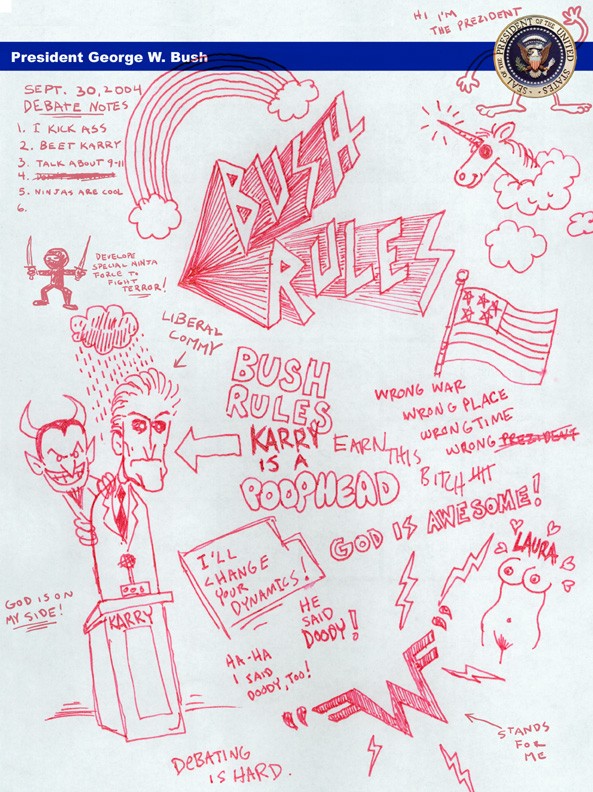 HI I'M
THE PREZIDENT
SEAL OF THE PRESIDENT OF THE UNITED STATES
President George W. Bush
SEPT. 30, 2004
DEBATE NOTES
1. I KICK ASS
2. BEET KARRY
3. TALK ABOUT 9-11
4.
5. NINJAS ARE COOL
6.
BUSH
RULES
DEVELOPE
SPECIAL NINJA
FORCE TO
FIGHT
TERROR!
LIBERAL
COMMY
BUSH
RULES
KARRY
IS A
POOPHEAD
WRONG WAR
WRONG PLACE
WRONG TIME
WRONG PREZIDENT
EARN THIS
BITCH HIT
GOD IS AWESOME!
LAURA
I'LL
CHANGE
YOUR
DYNAMICS!
HE
SAID
DOODY!
HA-HA
I SAID
DOODY, TOO!
GOD IS ON
MY SIDE!
KARRY
"W"
STANDS
FOR
ME
DEBATING
IS HARD.